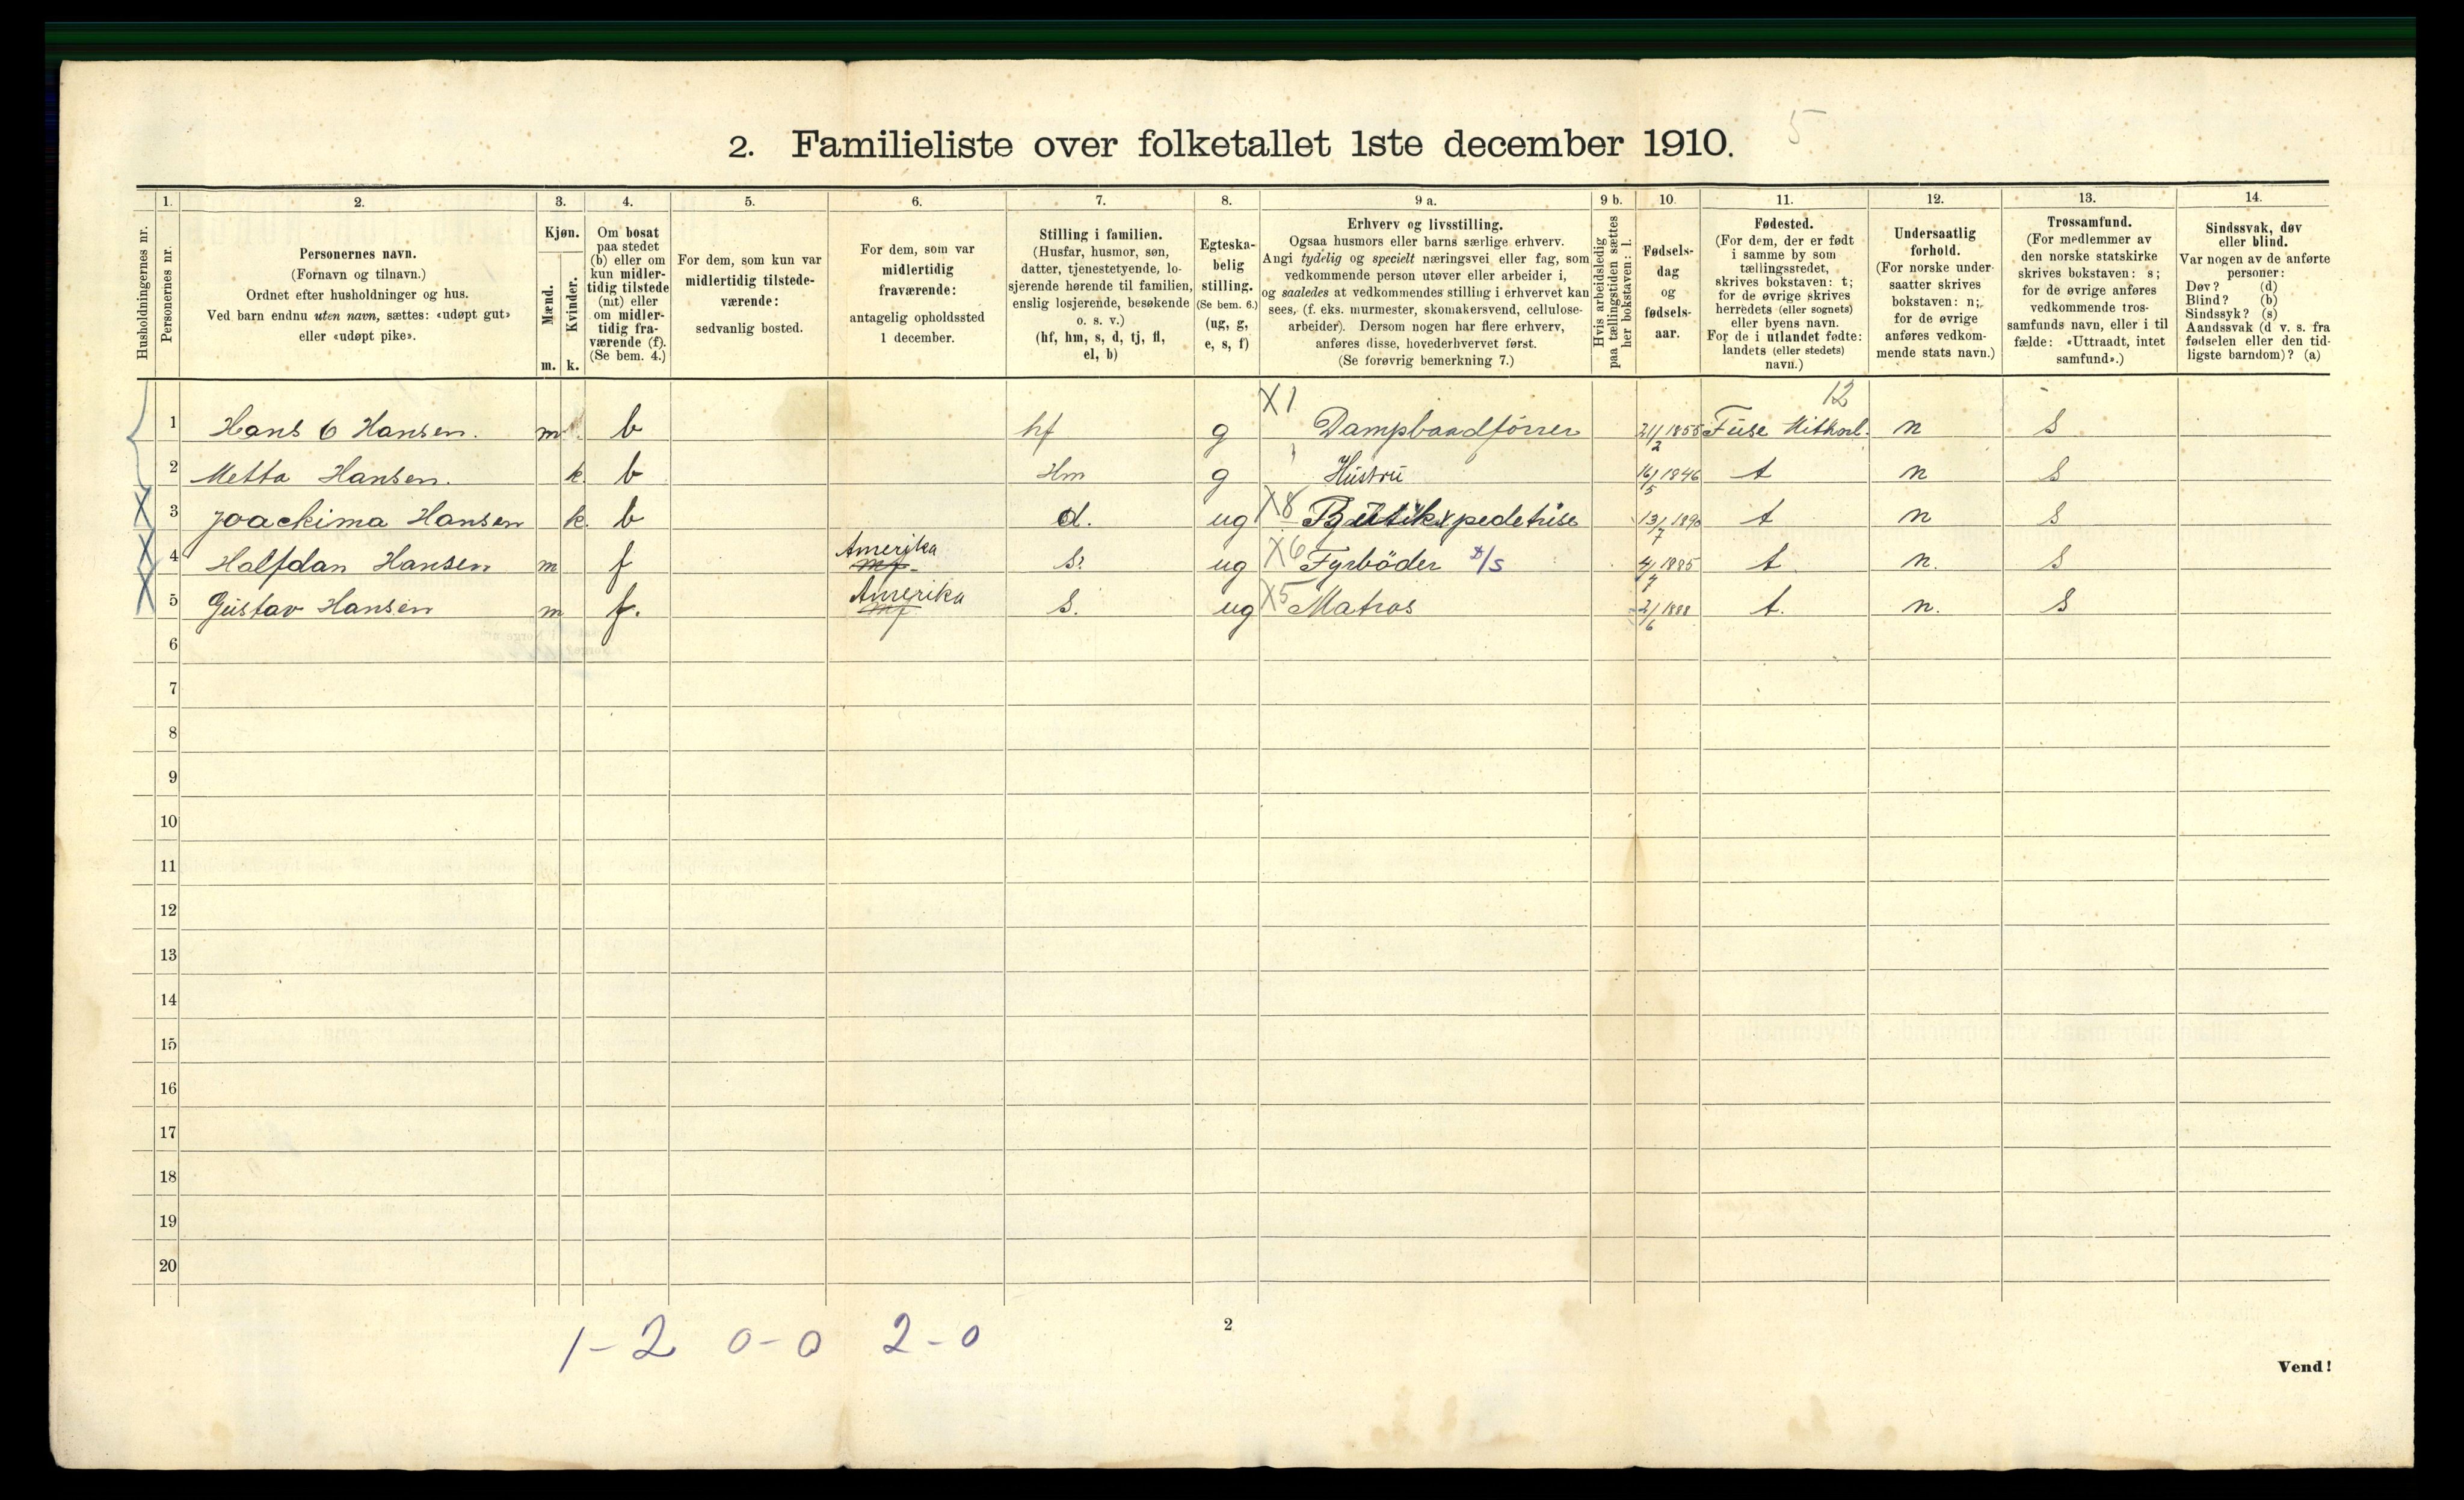 5
2. Familieliste over folketallet 1ste december 1910.
Husholdningernes nr.
1.
Personernes nr.
2.
Personernes navn.
(Fornavn og tilnavn.)
Ordnet efter husholdninger og hus.
Ved barn endnu uten navn, sættes: «udøpt gut»
eller «udøpt pike».
3.
Kjøn.
Mænd.
Kvinder.
m. k.
4.
Om bosat
paa stedet
(b) eller om
kun midler-
tidig tilstede
(mt) eller
om midler-
tidig fra-
værende (f).
(Se bem. 4.)
5.
For dem, som kun var
midlertidig tilstede-
værende:
sedvanlig bosted.
6.
For dem, som var
midlertidig
fraværende:
antagelig opholdssted
1 december.
7.
Stilling i familien.
(Husfar, husmor, søn,
datter, tjenestetyende, lo-
sjerende hørende til familien,
enslig losjerende, besøkende
o. s. v.)
(hf, hm, s, d, tj, fl,
el, b)
8.
Egteska-
belig
stilling.
(Se bem. 6.)
(ug, g,
e, s, f)
9 a.
Erhverv og livsstilling.
Ogsaa husmors eller barns særlige erhverv.
Angi tydelig og specielt næringsvei eller fag, som
vedkommende person utøver eller arbeider i,
og saaledes at vedkommendes stilling i erhvervet kan
sees, (f. eks. murmester, skomakersvend, cellulose-
arbeider). Dersom nogen har flere erhverv,
anføres disse, hovederhvervet først.
(Se forøvrig bemerkning 7.)
9 b.
Hvis arbeidsledig
paa tællingstiden sættes
her bokstaven: l.
10.
Fødsels-
dag
og
fødsels-
aar.
11.
Fødested.
(For dem, der er født
i samme by som
tællingsstedet,
skrives bokstaven: t;
for de øvrige skrives
herredets (eller sognets)
eller byens navn.
For de i utlandet fødte:
landets (eller stedets)
navn.)
12.
Undersaatlig
forhold.
(For norske under-
saatter skrives
bokstaven: n;
for de øvrige
anføres vedkom-
mende stats navn.)
13.
Trossamfund.
(For medlemmer av
den norske statskirke
skrives bokstaven: s;
for de øvrige anføres
vedkommende tros-
samfunds navn, eller i til
fælde: «Uttraadt, intet
samfund».)
14.
Sindssvak, døv
eller blind.
Var nogen av de anførte
personer:
Døv? (d)
Blind? (b)
Sindssyk? (s)
Aandssvak (d v. s. fra
fødselen eller den tid-
ligste barndom)? (a)
X1 12
1 Hans O Hansen. m. b hf g Dampbaadförrer 21/2 1855 Fuse n s
2 Metta Hansen. k b Hm g Hustru 16/5 1846 t n s
3 Joackima Hansen k. b d. ug X8 13/7 1890 t n s
4 Halfdan Hansen m f Amerika mf. s. ug X6 Fyrböder D/S 4/7 1885 t n. s
5 Gustav Hansen m f. Amerika mf s. ug X5 Matros 2/6 1888 t. n. s
6
7
8
9
10
11
12
13
14
15
16
17
18
19
20
1-2 0-0 2-0
2
Vend!